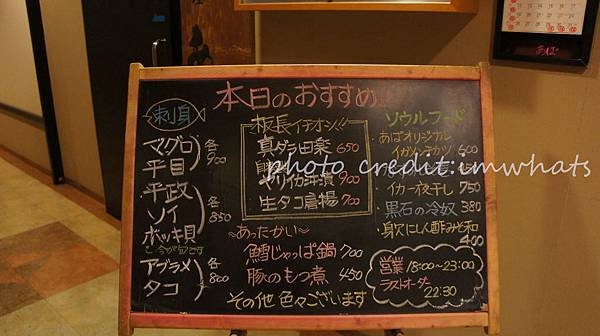 本日のおすすめ!!
刺身
マグロ
平目
各900
平政
ソイ
ボッキ貝
各850
今が旬です
アブラメ
タコ
各800
板長イチオシ!!!
真ダラ田楽 650
ヤリイカ沖漬 900
生タコ唐揚 700
あったかい
鱈じゃっぱ鍋 700
豚のもつ煮 450
その他 色々ございます
ソウルフード
・あばオリジナル
イガメンチカツ
・イカ一夜干し 750
・黒石の冷奴 380
・身欠にしん酢みそ和
400
営業 18:00~23:00
ラストオーダー
22:30
あば
photo credit:umwhats